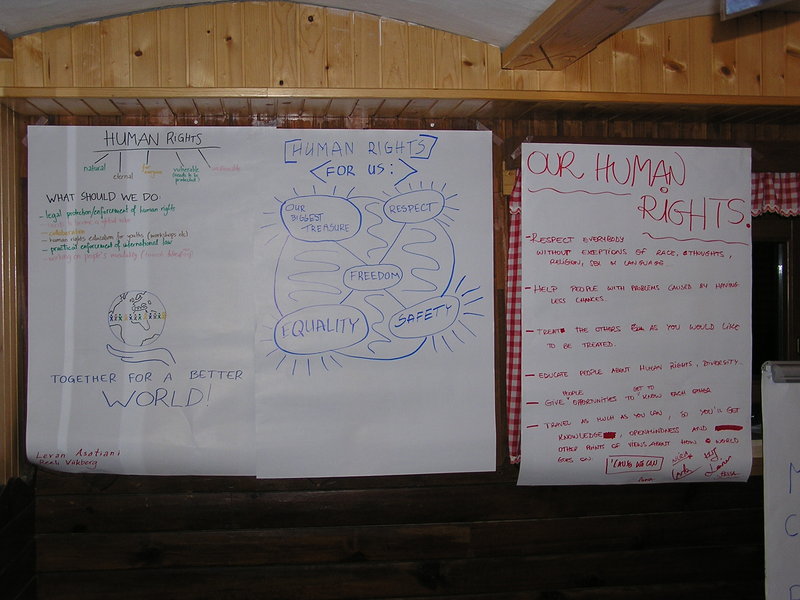 HUMAN RIGHTS
natural
eternal
for everyone
vulnerable
(needs to be
protected!)
WHAT SHOULD WE DO:
- legal protection/enforcement of human rights
- collaboration
- human rights education for youths (workshops etc)
- practical enforcement of international law
- working on people's mentality (toward diversity)
TOGETHER FOR A BETTER
WORLD!
Levan Asatiani
HUMAN RIGHTS
FOR US:
OUR
BIGGEST
TREASURE
RESPECT
FREEDOM
EQUALITY
SAFETY
OUR HUMAN
RIGHTS.
- RESPECT EVERYBODY
WITHOUT EXEPTIONS OF RACE, THOUGHTS,
RELIGION, SEX OR LANGUAGE.
- HELP PEOPLE WITH PROBLEMS CAUSED BY HAVING
LESS CHANCES.
- TREAT THE OTHERS AS YOU WOULD LIKE
TO BE TREATED.
- EDUCATE PEOPLE ABOUT HUMAN RIGHTS, DIVERSITY...
- GIVE PEOPLE OPORTUNITIES TO GET TO KNOW EACH OTHER
- TRAVEL AS MUCH AS YOU CAN, SO YOU'LL GET
KNOWLEDGE, OPENMINDNESS AND
OTHER POINTS OF VIEWS ABOUT HOW WORLD
GOES ON.
'CAUSE WE CAN